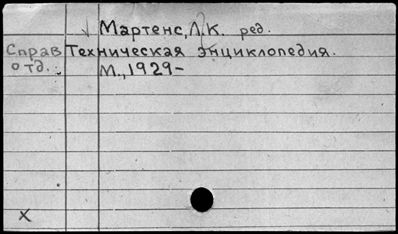 Мартенс, Л.К. ред.
Справ Техническая энциклопедия.
отд. М., 1929-
х